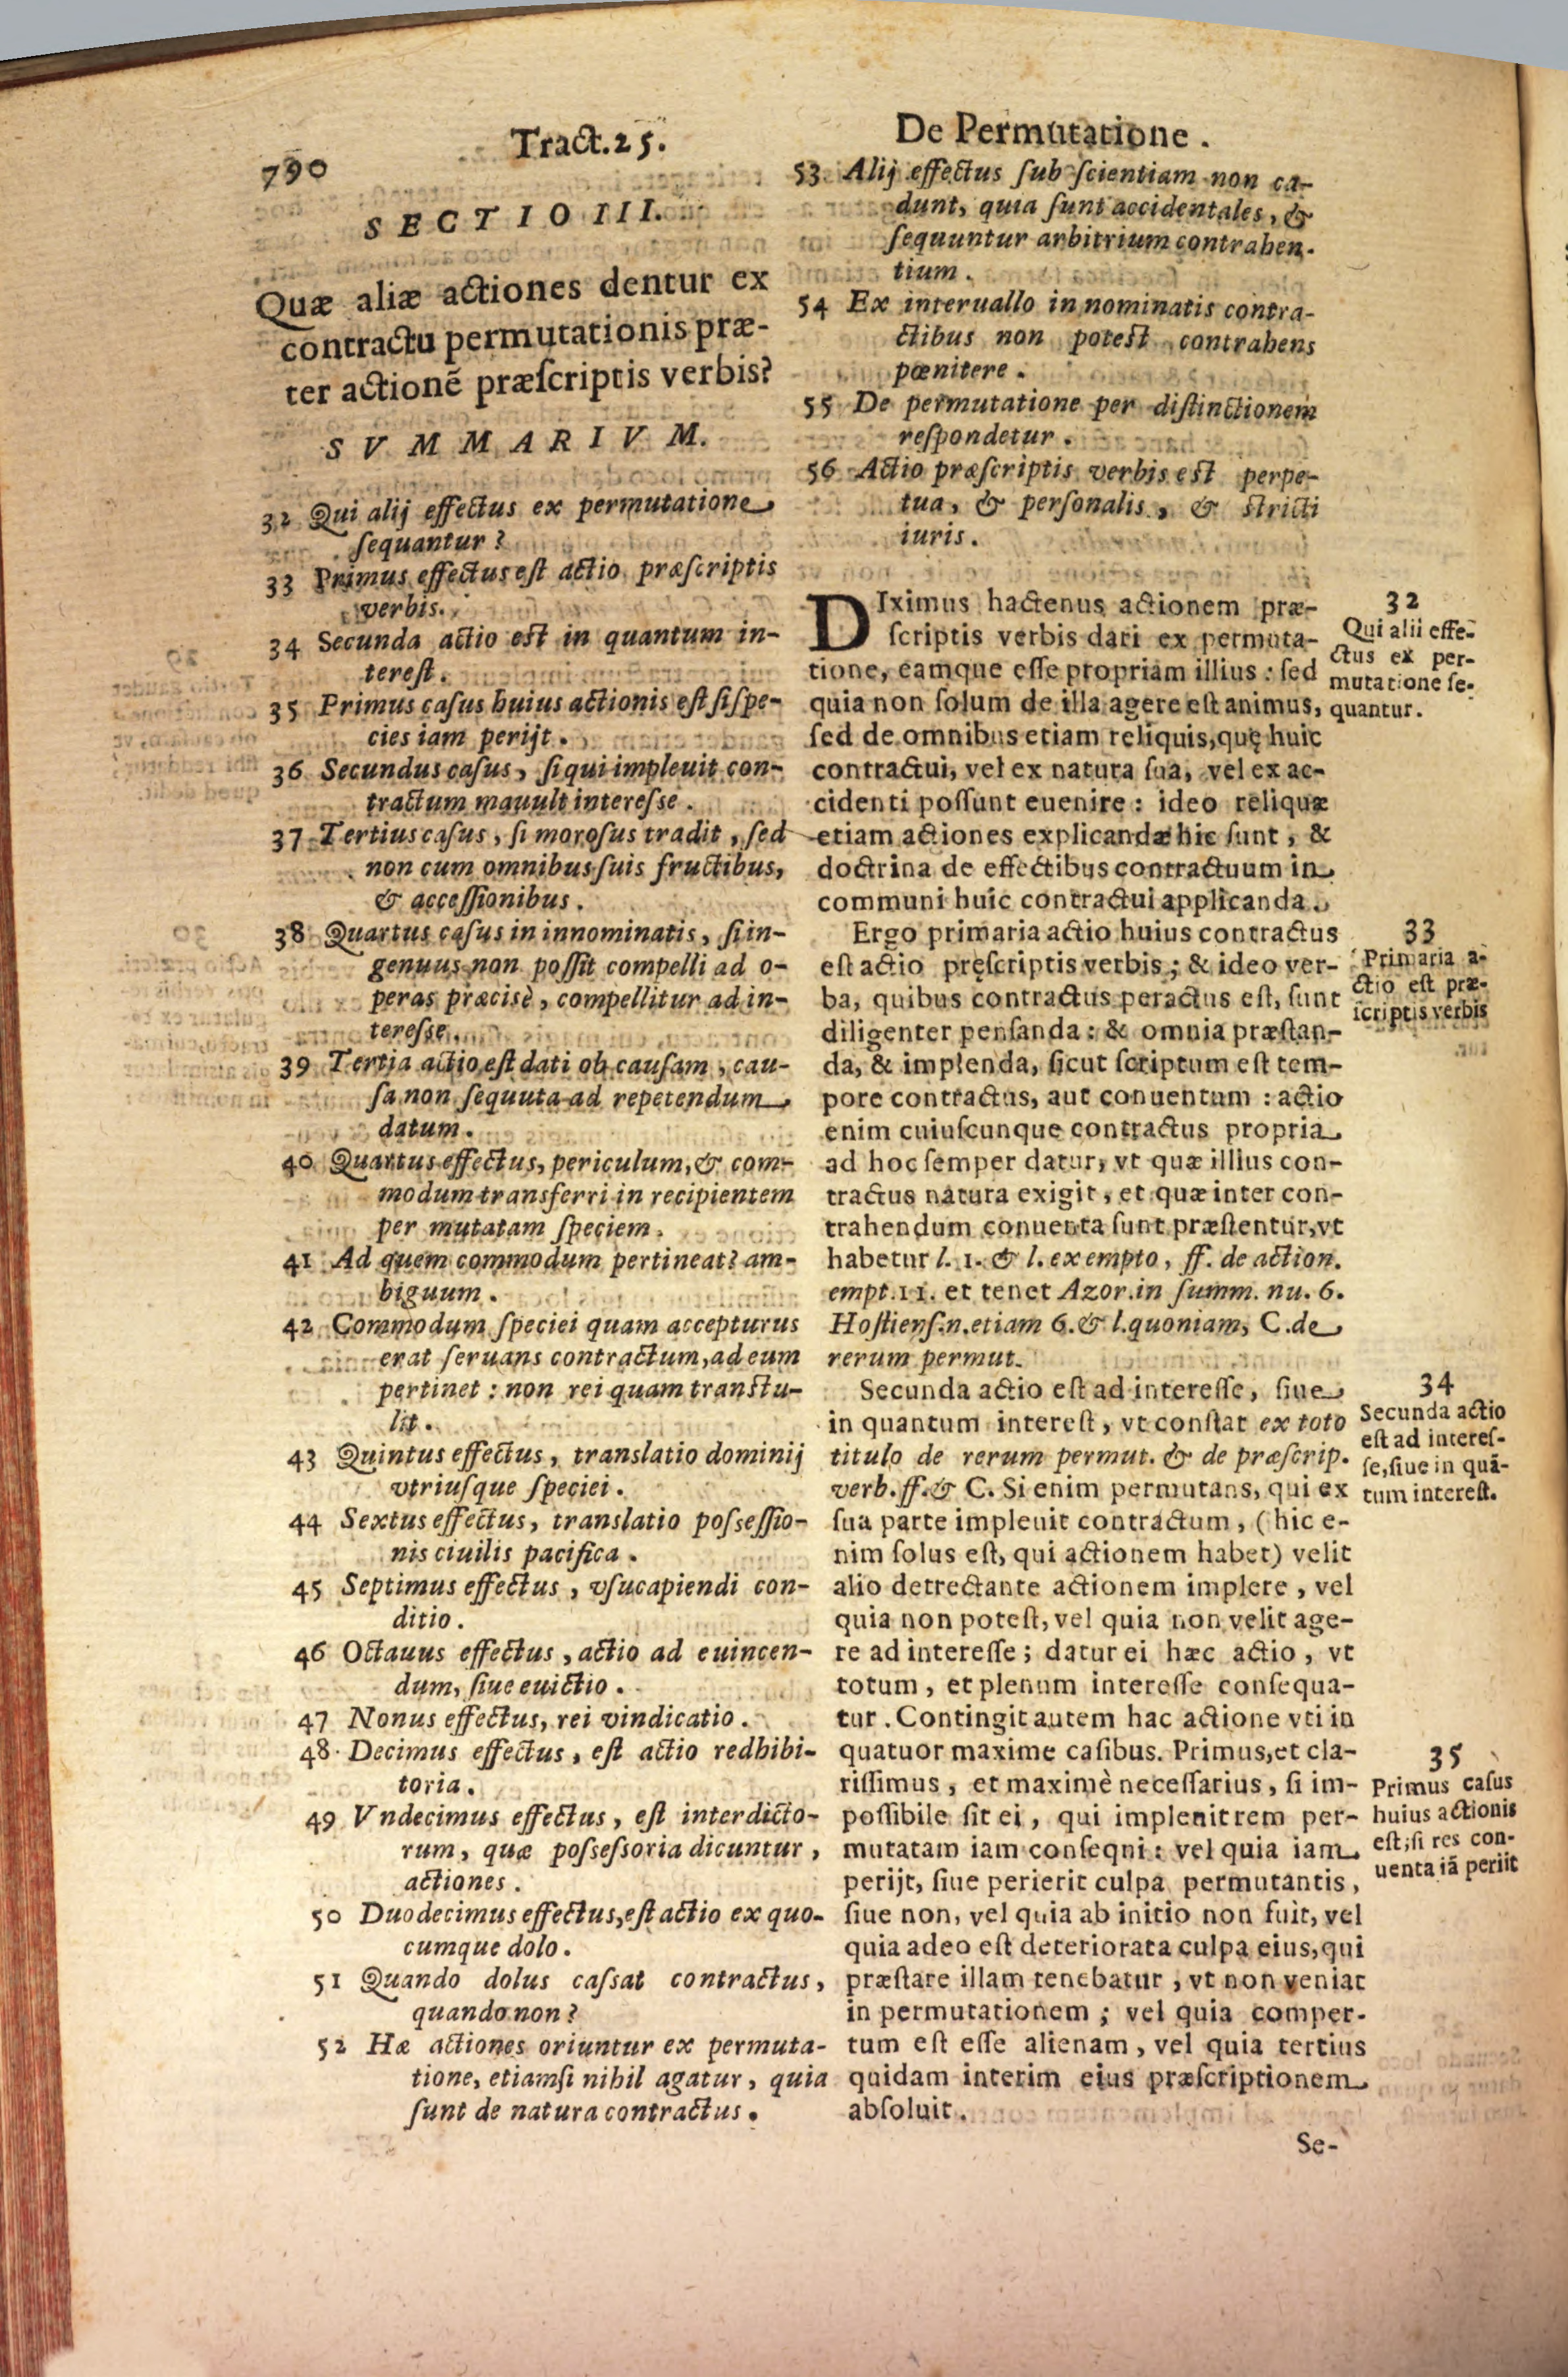 790
Tract.25.
De Permutatione.
SECTIO III.
Quæ aliæ actiones dentur ex
contractu permutationis præ-
ter actionẽ præſcriptis verbis?
SVMMARIVM.
32 Qui alij effectus ex permutatione
ſequantur?
33 Primus effectus eſt actio præſcriptis
verbis.
34 Secunda actio eſt in quantum in-
tereſt.
35 Primus caſus huius actionis eſt ſi ſpe-
cies iam perijt.
36 Secundus caſus, ſi qui impleuit con-
tractum mauult intereſse.
37 Tertius caſus, ſi moroſus tradit, ſed
non cum omnibus ſuis fructibus,
& acceſſionibus.
38 Quartus caſus in innominatis, ſi in-
genuus non poſſit compelli ad o-
peras præcisè, compellitur ad in-
tereſse.
39 Tertia actio eſt dati ob cauſam, cau-
ſa non ſequuta ad repetendum
datum.
40 Quartus effectus, periculum, & com-
modum transferri in recipientem
per mutatam ſpeciem.
41 Ad quem commodum pertineat? am-
biguum.
42 Commodum ſpeciei quam accepturus
erat ſeruans contractum, ad eum
pertinet: non rei quam tranſtu-
lit.
43 Quintus effectus, translatio dominij
vtriuſque ſpeciei.
44 Sextus effectus, translatio poſseſſio-
nis ciuilis pacifica.
45 Septimus effectus, vſucapiendi con-
ditio.
46 Octauus effectus, actio ad euincen-
dum, ſiue euictio.
47 Nonus effectus, rei vindicatio.
48 Decimus effectus, eſt actio redhibi-
toria.
49 Vndecimus effectus, eſt interdicto-
rum, quæ poſseſsoria dicuntur,
actiones.
50 Duodecimus effectus, eſt actio ex quo-
cumque dolo.
51 Quando dolus caſsat contractus,
quando non?
52 Hæ actiones oriuntur ex permuta-
tione, etiamſi nihil agatur, quia
ſunt de natura contractus.
53 Alij effectus ſub ſcientiam non ca-
dunt, quia ſunt accidentales, &
ſequuntur arbitrium contrahen-
tium.
54 Ex interuallo in nominatis contra-
ctibus non poteſt contrahens
pœnitere.
55 De permutatione per diſtinctionem
reſpondetur.
56 Actio præſcriptis verbis eſt perpe-
tua, & perſonalis, & ſtricti
iuris.
DIximus hactenus actionem præ-
ſcriptis verbis dari ex permuta-
tione, eamque eſſe propriam illius: ſed
quia non ſolum de illa agere eſt animus,
ſed de omnibus etiam reliquis, quę huic
contractui, vel ex natura ſua, vel ex ac-
cidenti poſſunt euenire: ideo reliquæ
etiam actiones explicandæ hic ſunt, &
doctrina de effectibus contractuum in
communi huic contractui applicanda.
Ergo primaria actio huius contractus
eſt actio pręſcriptis verbis; & ideo ver-
ba, quibus contractus peractus eſt, ſunt
diligenter penſanda: & omnia præſtan-
da, & implenda, ſicut ſcriptum eſt tem-
pore contractus, aut conuentum: actio
enim cuiuſcunque contractus propria
ad hoc ſemper datur, vt quæ illius con-
tractus natura exigit, et quæ inter con-
trahendum conuenta ſunt præſtentur, vt
habetur l. 1. & l. ex empto, ff. de action.
empt. 11. et tenet Azor. in ſumm. nu. 6.
Hoſtienſ. n. etiam 6. & l. quoniam, C. de
rerum permut.
Secunda actio eſt ad intereſſe, ſiue
in quantum intereſt, vt conſtat ex toto
titulo de rerum permut. & de præſcrip.
verb. ff. & C. Si enim permutans, qui ex
ſua parte impleuit contractum, (hic e-
nim ſolus eſt, qui actionem habet) velit
alio detrectante actionem implere, vel
quia non poteſt, vel quia non velit age-
re ad intereſſe; datur ei hæc actio, vt
totum, et plenum intereſſe conſequa-
tur. Contingit autem hac actione vti in
quatuor maxime caſibus. Primus, et cla-
riſſimus, et maximè neceſſarius, ſi im-
poſſibile ſit ei, qui impleuit rem per-
mutatam iam conſequi: vel quia iam
perijt, ſiue perierit culpa permutantis,
ſiue non, vel quia ab initio non fuit, vel
quia adeo eſt deteriorata culpa eius, qui
præſtare illam tenebatur, vt non veniat
in permutationem; vel quia comper-
tum eſt eſſe alienam, vel quia tertius
quidam interim eius præſcriptionem
abſoluit.
Se-
32
Qui alii effe-
ctus ex per-
mutatione ſe-
quantur.
33
Primaria a-
ctio eſt præ-
ſcriptis verbis
34
Secunda actio
eſt ad intereſ-
ſe, ſiue in quã-
tum intereſt.
35
Primus caſus
huius actionis
eſt, ſi res con-
uenta iã periit